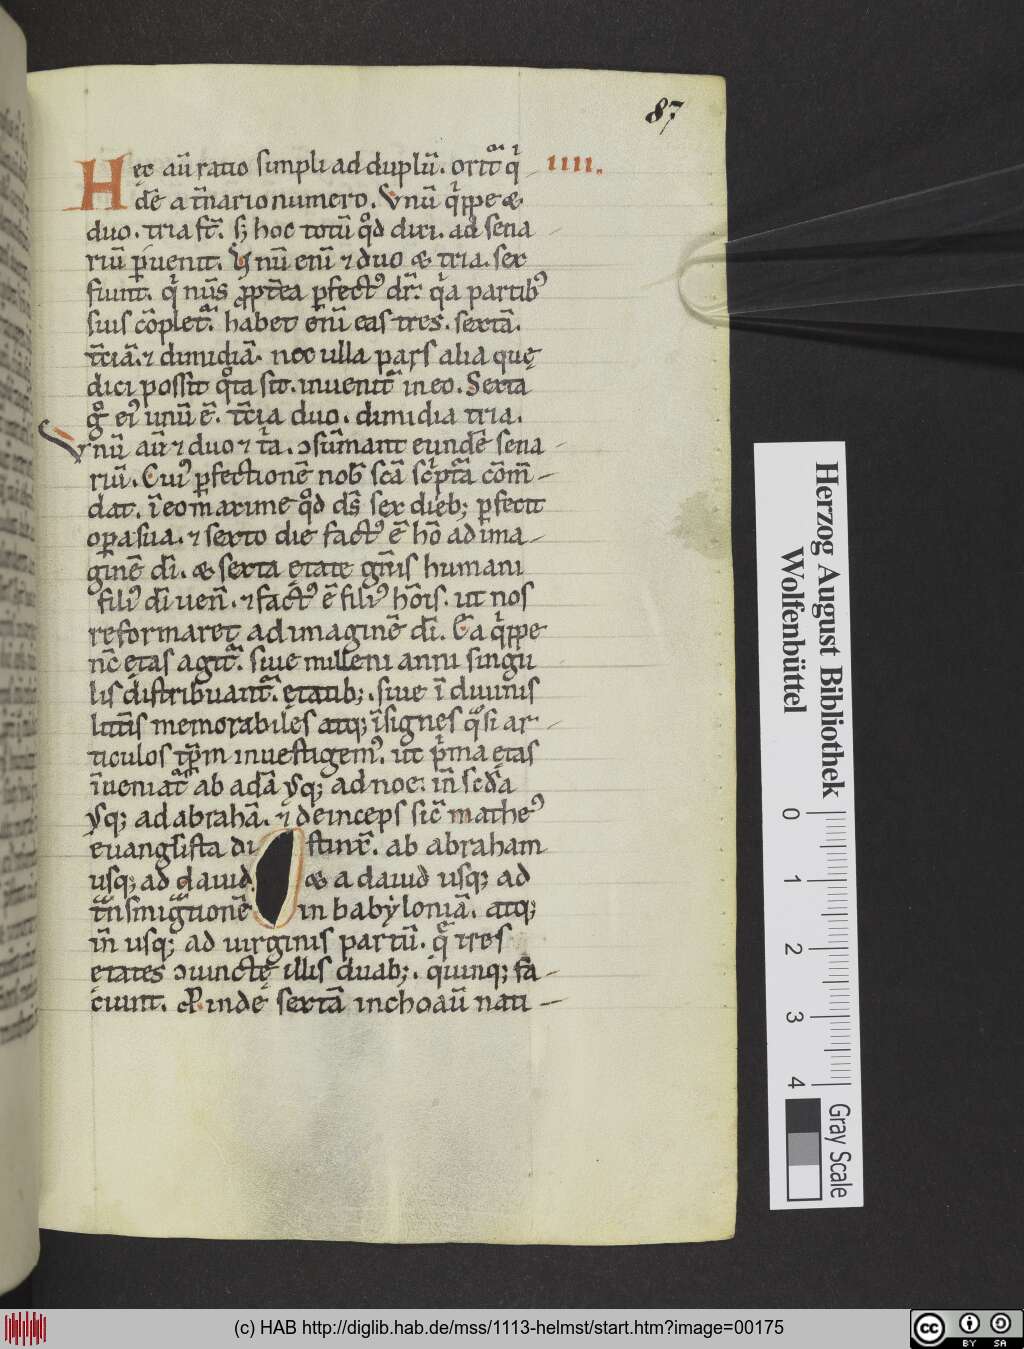 87
Hec aū ratio simpli ad duplū. orit̄ q̄ · IIII.
dē a t̄nario numero. Vnū q̄ppe &
duo. tria fc̄. s; hoc totū qd̄ dixi. ad sena
riū ꝑuenit. Vnū enī ⁊ duo & tria. sex
fiunt. q̇ nūs ꝓptea ꝑfectꝰ dr̄. q̇a partibꝰ
suis cōplet̄. habet enī eas tres. sextā.
t̄ciā. ⁊ dimidiā. nec ulla pars alia quę
dici possit q̊ta sit. inuenit̄ in eo. Sexta
g̊ eiꝰ unū ē. t̄cia duo. dimidia tria.
Vnū aū ⁊ duo ⁊ t̄a. ↄsūmant eundē sena
riū. Cuiꝰ ꝑfectionē nob̄ scā sc̄pt̄a cōm̄
dat. ī eo maxime qd̄ ds̄ sex dieb; ꝑfecit
oꝑa sua. ⁊ sexto die factꝰ ē hō ad ima
ginē dī. & sexta ętate gn̄is humani
filiꝰ dī uen̄. ⁊ factꝰ ē filiꝰ hōis. ut nos
reformaret ad imaginē dī. Ea q̄ppe
nc̄ ętas agit̄. siue milleni anni singu
lis distribuant̄ ętatib;. siue ī diuinis
litt̄is memorabiles atq; īsignes q̄si ar
ticulos tp̄m inuestigemꝰ. ut p̄ma ętas
īueniat̄ ab adā usq; ad noe: in̄ scd̄a
usq; ad abrahā. ⁊ deinceps sic̄ matheꝰ
euangl̄ista di stinx̄. ab abraham
usq; ad dauid. & a dauid usq; ad
t̄nsmig̃tionē in babyloniā. atq;
in̄ usq; ad uirginis partū. q̄ tres
etates ↄiunctę illis duab;. quinq; fa
ciunt. Proinde sextā inchoaū nati
Herzog August Bibliothek
Wolfenbüttel
0 1 2 3 4
Gray Scale
(c) HAB http://diglib.hab.de/mss/1113-helmst/start.htm?image=00175
cc BY SA